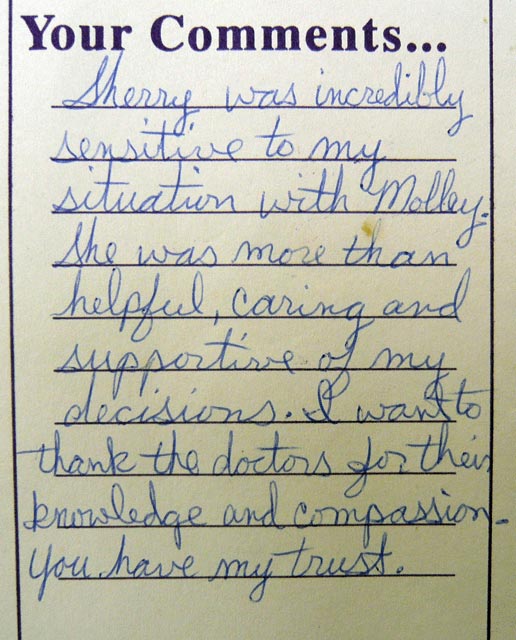 Your Comments...
Sherry was incredibly
sensitive to my
situation with Molley.
She was more than
helpful, caring and
supportive of my
decisions. I want to
thank the doctors for their
knowledge and compassion.
You have my trust.